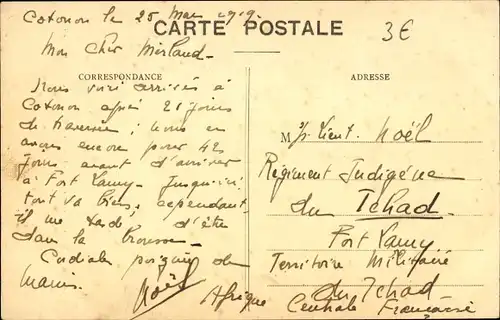 Cotonou le 25 Mai 1919.
CARTE POSTALE
3€
Mon cher Merland -
CORRESPONDANCE
Nous voici arrivés à
Cotonou après 21 jours
de traversée ; nous en
avons encore pour 45
jours avant d'arriver
à Fort Lamy. Jusqu'ici
tout va bien, cependant,
il me tarde d'être
dans la brousse -
Cordiale poignée de
mains.
Noël
ADRESSE
M s/s Lieut. Noël
Régiment Indigène
du Tchad
Fort Lamy
Territoire Militaire
du Tchad
Afrique Centrale Française